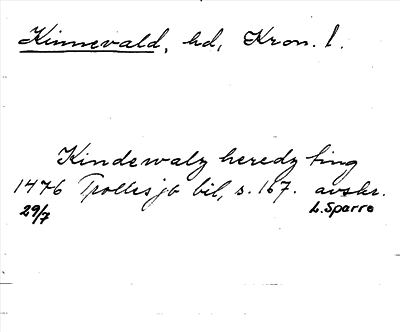 Kinnevald, hd, Kron. l.
Kindewalz heredz ting
1476 Trollesjö bil, s. 167. avskr.
29/7 L. Sparre